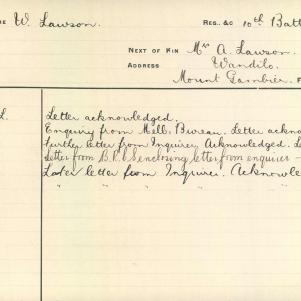 ME W. Lawson. REG. &C 10th Batt
NEXT OF KIN Mrs A. Lawson.
ADDRESS Wandilo.
Mount Gambier. F
L. Letter acknowledged.
Enquiry from Melb. Bureau. Letter ackno
Further letter from Inquirer. Acknowledged. L
Letter from B.R.C.S enclosing letter from enquirer –
Later letter from Inquirer. Acknowle
" " " " "